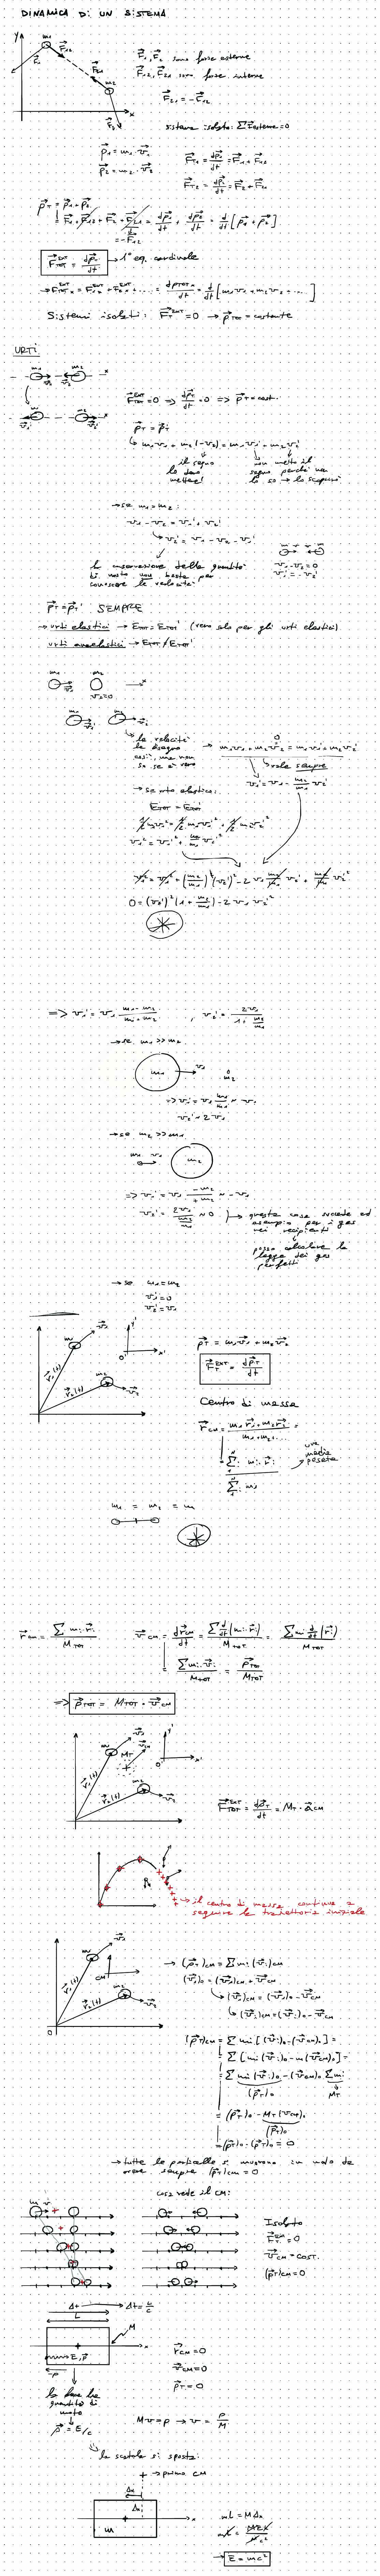 DINAMICA DI UN SISTEMA
y
m₁
F₁₂
F₁
F₂₁
m₂
F₂
x
F₁, F₂ sono forze esterne
F₁₂, F₂₁ sono forze interne
F₂₁ = -F₁₂
sistema isolato: ΣF esterne = 0
p₁ = m₁ · v₁
p₂ = m₂ · v₂
F_T1 = dp₁/dt = F₁ + F₁₂
F_T2 = dp₂/dt = F₂ + F₂₁
p_T = p₁ + p₂
= F₁ + F₁₂ + F₂ + F₂₁ = dp₁/dt + dp₂/dt = d/dt [p₁ + p₂]
= -F₁₂
F_TOT^EXT = dp_T/dt → 1° eq. cardinale
Sistemi isolati: F_T^EXT = 0 → p_TOT = costante
URTI
F_TOT^EXT = 0 => dp_T/dt = 0 => p_T = cost.
p_T = p_T'
m₁v₁ + m₂(-v₂) = m₁v₁' + m₂v₂'
il segno
lo devo
mettere!
non metto il
segno perché non
lo so → lo scoprirò
→ se m₁ = m₂:
v₁ - v₂ = v₁' + v₂'
v₂' = v₁ - v₂ - v₁'
la conservazione della quantità
di moto non basta per
conoscere le velocità
v₁ - v₂ = 0
v₁' = -v₂'
p_T = p_T' SEMPRE
→ urti elastici → E_TOT = E_TOT' (vero solo per gli urti elastici)
urti anelastici → E_TOT ≠ E_TOT'
m₁ m₂
v₁ v₂=0 x
la velocità
la disegno
così, ma non
so se è vero
m₁v₁ + m₂v₂ = m₁v₁' + m₂v₂'
0
vale sempre
v₁' = v₁ - m₂/m₁ v₂'
→ se urto elastico:
E_TOT = E_TOT'
½ m₁v₁² = ½ m₁v₁'² + ½ m₂v₂'²
v₁² = v₁'² + m₂/m₁ v₂'²
v₁² = v₁² + (m₂/m₁)² (v₂')² - 2 v₁ m₂/m₁ v₂' + m₂/m₁ v₂'²
0 = (v₂')² (1 + m₂/m₁) - 2 v₁ v₂'
=> v₁' = v₁ (m₁ - m₂)/(m₁ + m₂) , v₂' = 2v₁/(1 + m₂/m₁)
→ se m₁ >> m₂
m₁ v₁ m₂
=> v₁' = v₁ m₁/m₁ ~ v₁
v₂' ~ 2v₁
→ se m₂ >> m₁
m₁ v₁ m₂
=> v₁' = v₁ -m₂/+m₂ ~ -v₁
v₂' = 2v₁/(m₂/m₁) ~ 0
→ questa cosa succede ad
esempio per i gas
nei recipienti
posso calcolare la
legge dei gas
perfetti
→ se m₁ = m₂
v₁' = 0
v₂' = v₁
m₁ v₁ y' O' x'
r₁(t) m₂ r₂(t) v₂
p_T = m₁v₁ + m₂v₂
F_T^EXT = dp_T/dt
Centro di massa
r_CM = (m₁r₁ + m₂r₂ ...)/(m₁ + m₂ ...) =
= Σ mᵢ · rᵢ / Σ mᵢ
una
media
pesata
m₁ = m₂ = m
r_CM = Σ mᵢ · rᵢ / M_TOT
v_CM = dr_CM/dt = Σ d/dt (mᵢ · rᵢ) / M_TOT = Σ mᵢ d/dt (rᵢ) / M_TOT
= Σ mᵢ · vᵢ / M_TOT = p_TOT / M_TOT
=> p_TOT = M_TOT · v_CM
m₁ v₁ M_T v_CM y' O' x'
r₁(t) m₂ r₂(t) v₂
F_TOT^EXT = dp_T/dt = M_T · a_CM
→ il centro di massa continua a
seguire la traiettoria iniziale
m₁ v₁ CM
r₁(t) m₂ r₂(t) v₂
O
→ (p_T)_CM = Σ mᵢ (vᵢ)_CM
(vᵢ)₀ = (vᵢ)_CM + v_CM
↳ (vᵢ)_CM = (vᵢ)₀ - v_CM
↳ (vᵢ)_CM = (vᵢ)₀ - v_CM
(p_T)_CM = Σ mᵢ [(vᵢ)₀ - (v_CM)₀] =
= Σ [mᵢ (vᵢ)₀ - mᵢ (v_CM)₀] =
= Σ mᵢ (vᵢ)₀ - (v_CM)₀ Σ mᵢ
(p_T)₀ M_T
= (p_T)₀ - M_T (v_CM)₀
(p_T)₀
= (p_T)₀ - (p_T)₀ = 0
→ tutte le particelle si muovono in modo da
avere sempre (p_T)_CM = 0
cosa vede il CM:
Isolato
F_T^EXT = 0
v_CM = cost.
(p_T)_CM = 0
Δt → Δt = L/c
L
M
x
E, p
-p
la luce ha
quantità di
moto
p = E/c
r_CM = 0
v_CM = 0
p_T = 0
Mv = p → v = p/M
la scatola si sposta:
+ → primo CM
Δx
Δx
m
x
mL = MΔx
→ E = mc²